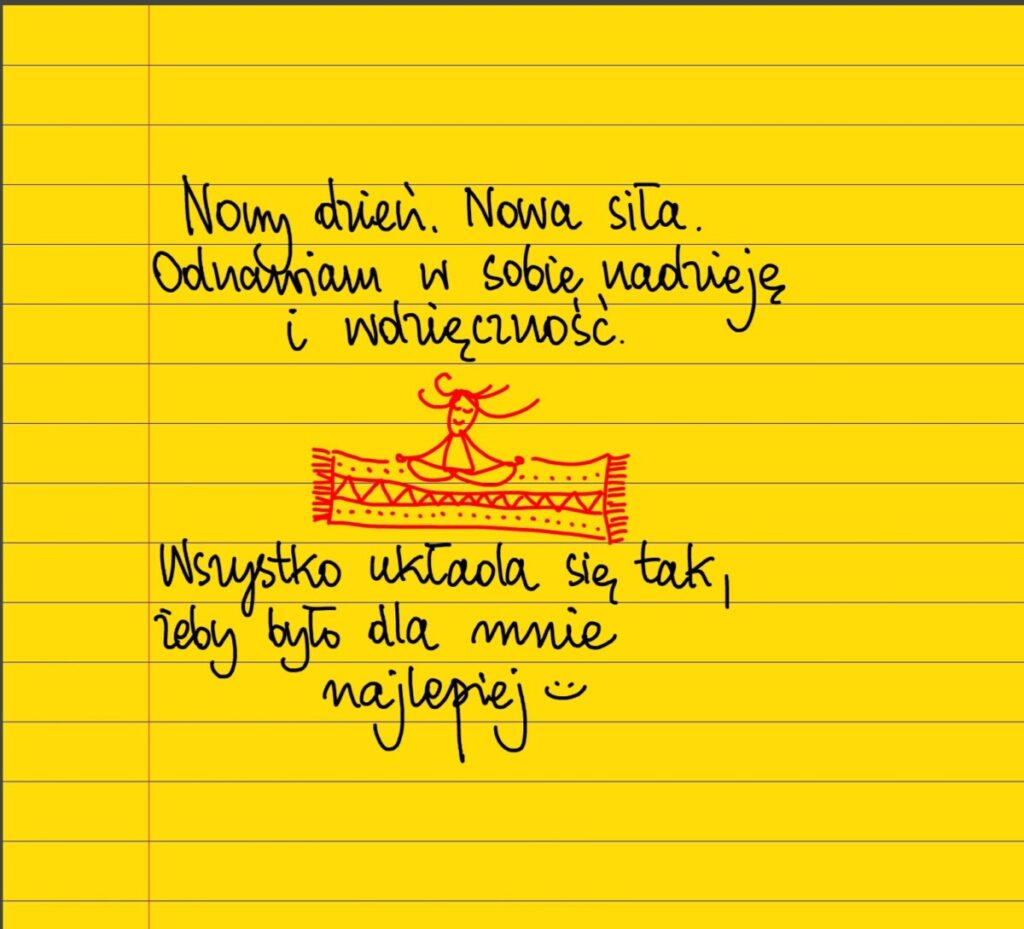 Nowy dzień. Nowa siła.
Odnawiam w sobie nadzieję
i wdzięczność.
Wszystko układa się tak,
żeby było dla mnie
najlepiej